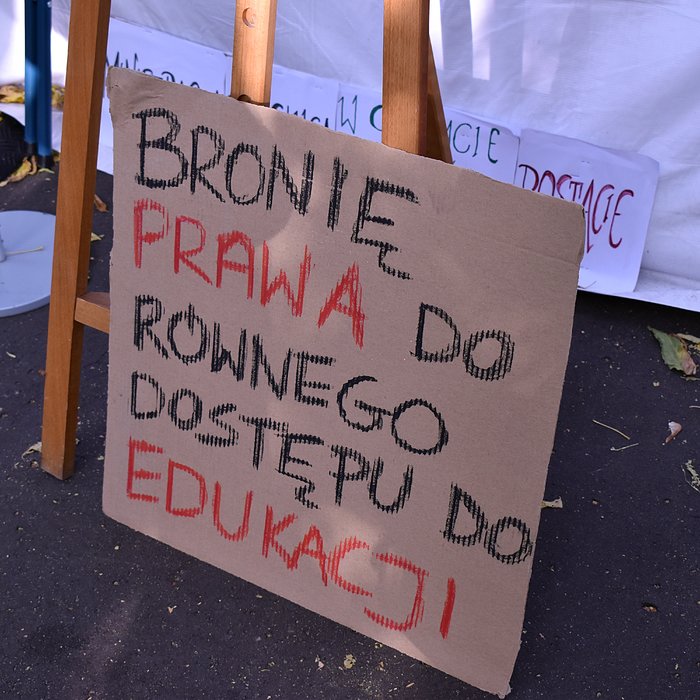 BRONIĘ
PRAWA DO
RÓWNEGO
DOSTĘPU DO
EDUKACJI
W
DOSTĄCIE